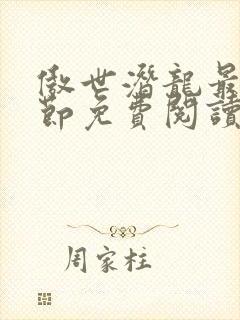 傲世潛龍最
節免費閱讀
周家柱